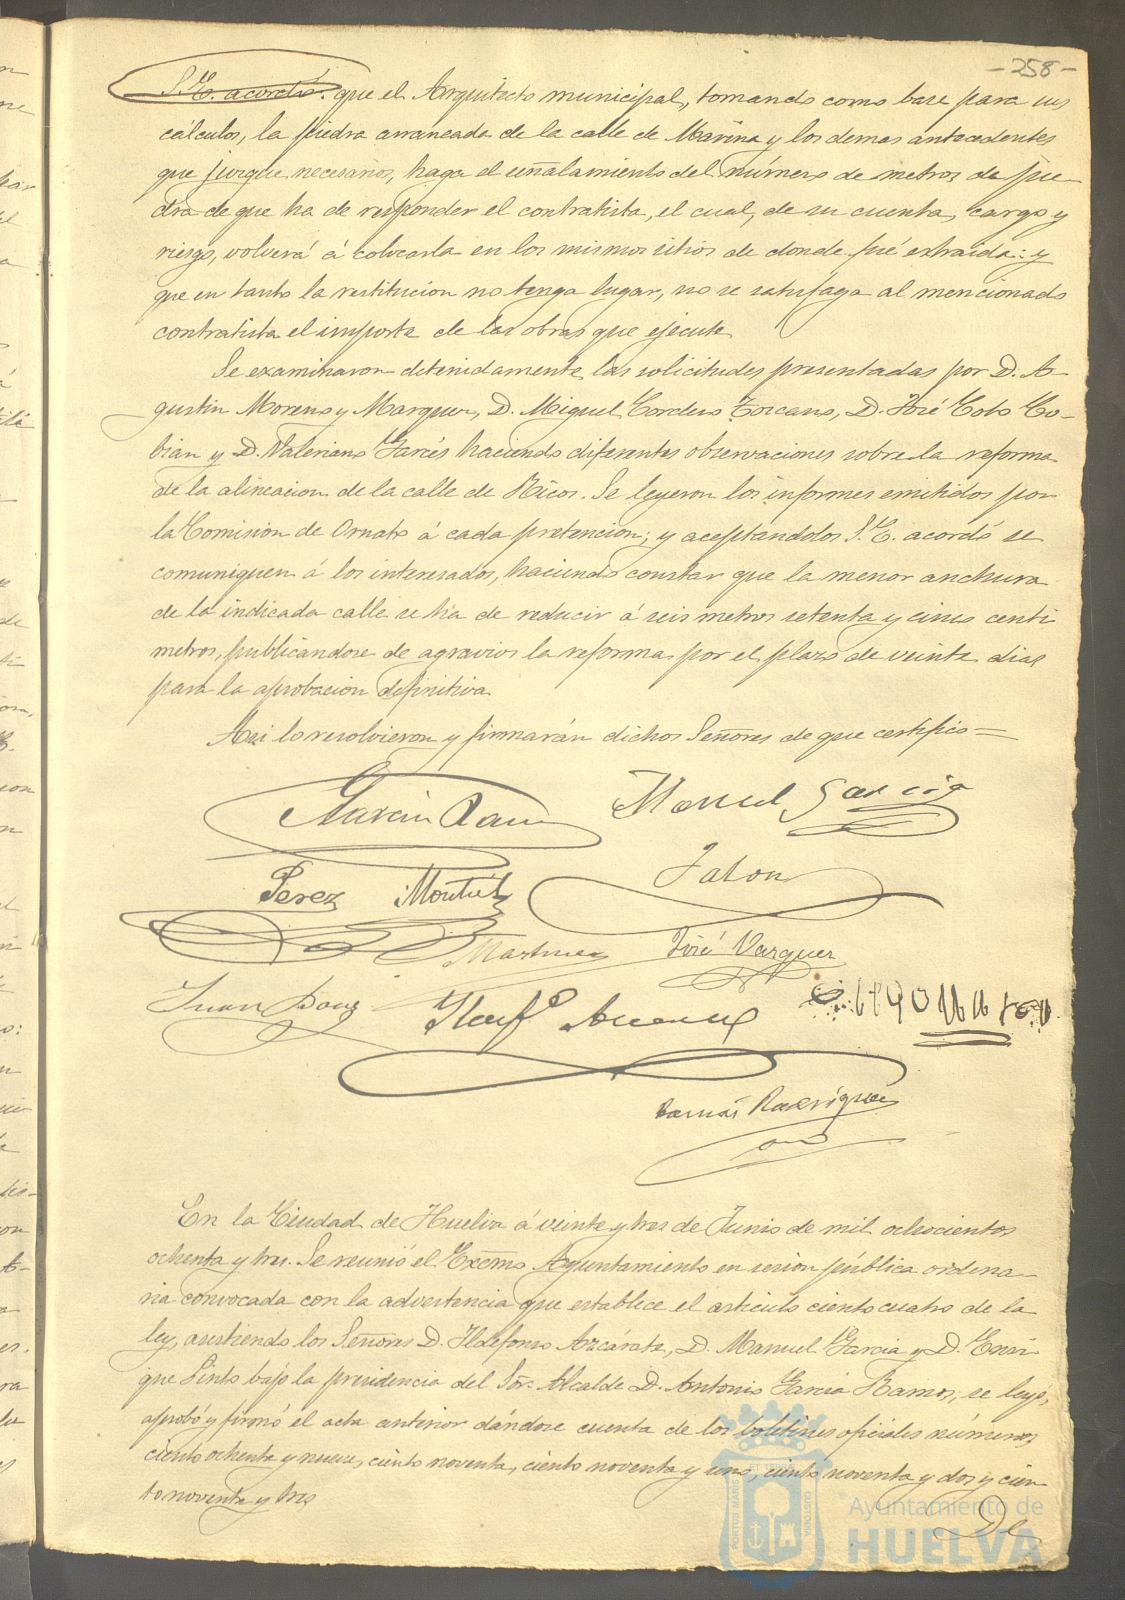 -258-
S. E. acordó: que el Arquitecto municipal, tomando como base para sus
cálculos, la piedra arrancada de la calle de Marina y los demas antecedentes
que juzgue necesarios, haga el señalamiento del número de metros de pie
dra de que ha de responder el contratista, el cual, de su cuenta, cargo y
riesgo, volverá á colocarla en los mismos sitios de donde fué extraida: y
que en tanto la restitucion no tenga lugar, no se satisfaga al mencionado
contratista el importe de las obras que ejecute
Se examinaron detenidamente las solicitudes presentadas por D. A-
gustin Moreno y Marquez, D. Miguel Cordero Toscano, D. José Cobo Co-
bian y D. Valeriano Garcés haciendo diferentes observaciones sobre la reforma
de la alineacion de la calle de Ricos. Se leyeron los informes emitidos por
la Comision de Ornato á cada pretencion; y aceptándolos S. E. acordó se
comuniquen á los interesados, haciendo constar que la menor anchura
de la indicada calle se ha de reducir á seis metros setenta y cinco centi
metros, publicandose de agravios la reforma por el plazo de veinte dias
para la aprobacion definitiva
Asi lo resolvieron y firmarán dichos Señores de que certifico =
Garcia Ramos
Manuel Garcia
Perez Montiel
Jalon
Martinez
José Vazquez
Juan
Ildef.º
Tomás Rodriguez
En la Ciudad de Huelva á veinte y tres de Junio de mil ochocientos
ochenta y tres. Se reunió el Excmo Ayuntamiento en sesion pública ordina-
ria convocada con la advertencia que establece el articulo ciento cuatro de la
ley, asistiendo los Señores D. Ildefonso Azcárate, D. Manuel Garcia y D. Enri
que Pinto bajo la presidencia del Sor. Alcalde D. Antonio Garcia Ramos, se leyó,
aprobó y firmó el acta anterior dándose cuenta de los boletines oficiales números
ciento ochenta y nueve, ciento noventa, ciento noventa y uno, ciento noventa y dos y cien
to noventa y tres
De
Ayuntamiento de
HUELVA